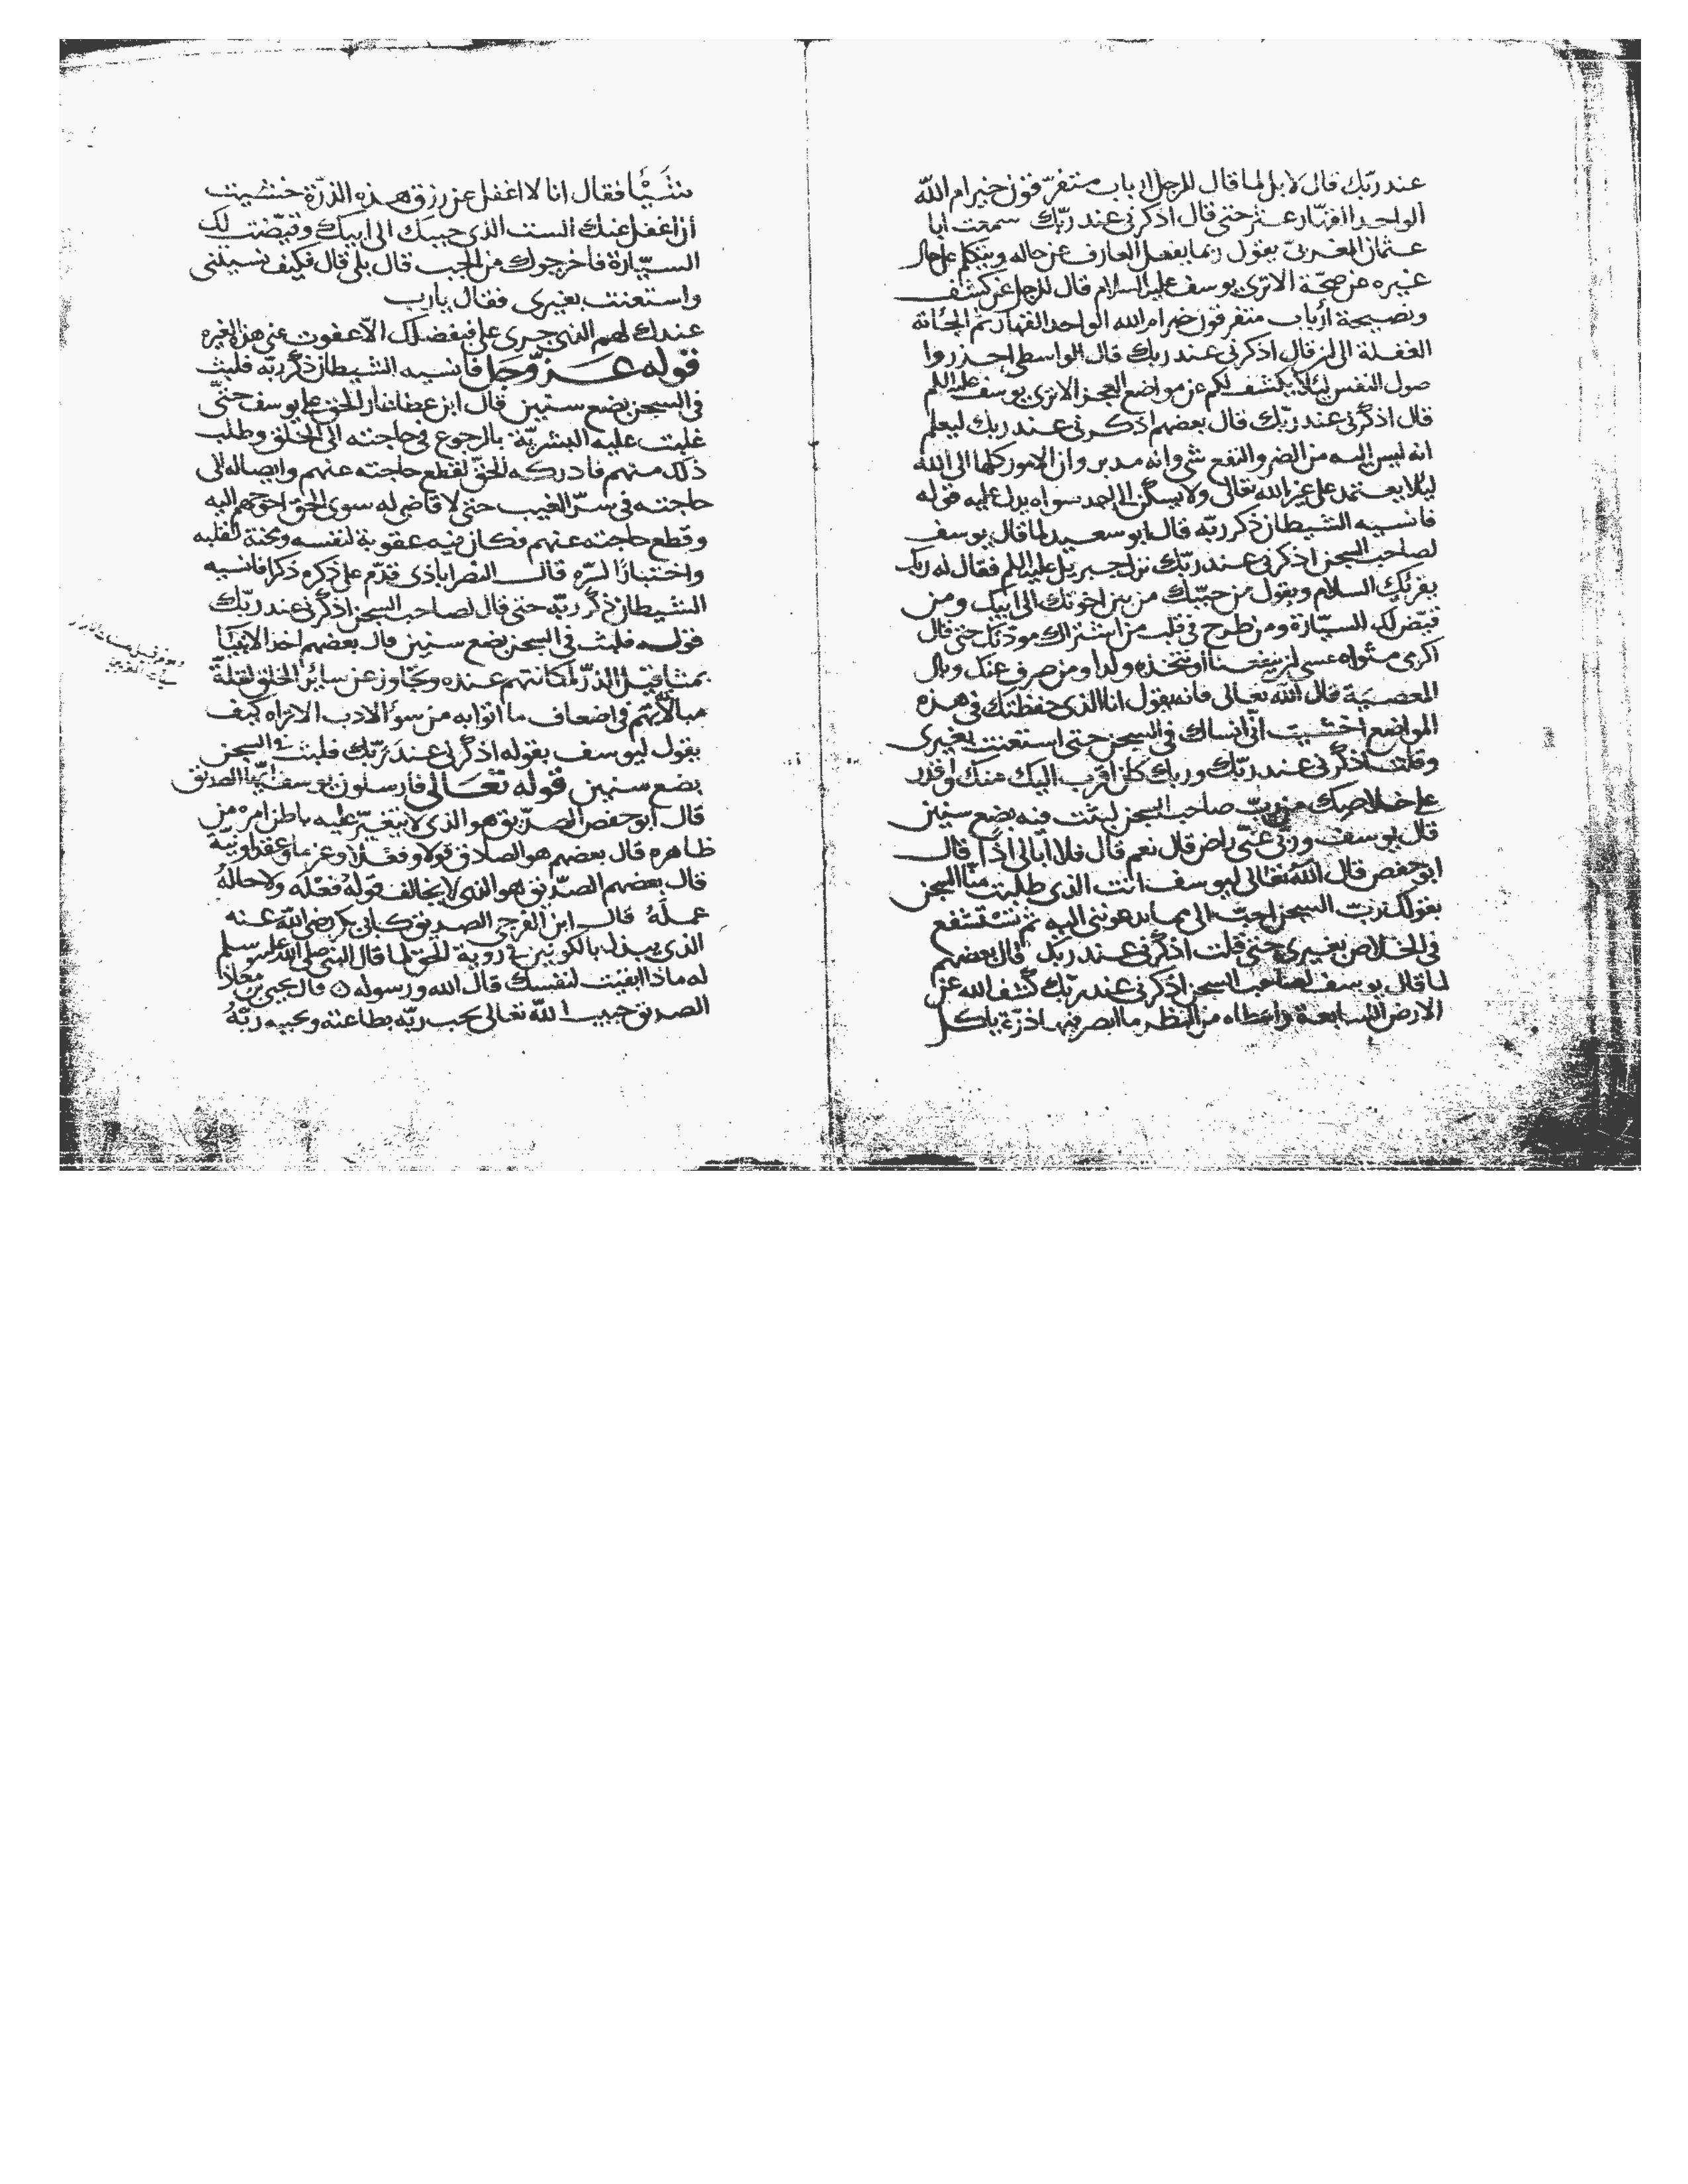 عند ربّك قال لا بل لما قال للرجل اارباب متفرّقون خير ام الله
الواحد القهّار عثر حتى قال اذكرنى عند ربّك سمعت ابا
عثمان المغربىّ يقول ربما يغفل العارف عن حاله ويتكلم على حال
غيره عن صحّة الا ترى يوسف عليه السلام قال للرجل عن كشف
ونصيحة أأرباب متفرقون خير ام الله الواحد القهار ثم الجأته
الغفلة الى ان قال اذكرنى عند ربك قال الواسطى احذروا
صول النفس لئلا يكشف لكم عن مواضع العجز الا ترى يوسف عليه السلم
قال اذكرنى عند ربّك قال بعضهم اذكرنى عند ربك ليعلم
انه ليس اليه من الضر والنفع شى وانه مدبر وان الامور كلها الى الله
ليلا يعتمد على غير الله تعالى ولا يسكن الى احد سواه يدل عليه قوله
فانسيه الشيطان ذكر ربّه قال ابو سعيد لما قال يوسف
لصاحب السجن اذكرنى عند ربّك نزل جبريل عليه السلم فقال له ربك
يقرئك السلام ويقول من حبّبك من بين اخوتك الى ابيك ومن
قيّض لك السيّارة ومن طرح فى قلب من اشتراك مودّتك حتى قال
اكرمى مثواه عسى ان ينفعنا او نتخذه ولدا ومن صرف عنك وبال
المعصية قال الله تعالى فانه يقول انا الذى حفظتك فى هذه
المواضع اخشيت انّى انساك فى السجن حتى استعنت بغيرى
وقلت اذكرنى عند ربّك وربك كان اقرب اليك منك واقدر
على خلاصك من ربّ صاحب السجن لبثت فيه بضع سنين
قال يوسف وربّى عنّى راض قال نعم قال فلا ابالى اذا قال
ابو حفص قال الله تعالى ليوسف انت الذى طلبت منّا السجن
بقولك ربّ السجن احبّ الى مما يدعوننى اليه ثم تستشفع
فى الخلاص بغيرى حتى قلت اذكرنى عند ربك قال بعضهم
لما قال يوسف لصاحب السجن اذكرنى عند ربّك كشف الله عن
الارض السابعة واعطاه من النظر ما ابصر فيها ذرّة ياكل
شَيْئًا فقال انا لا اغفل عن رزق هذه الذرّة خشيت
ان اغفل عنك الست الذى حببك الى ابيك وقيّضت لك
السيّارة فاخرجوك من الجب قال بلى قال فكيف نسيتنى
واستعنت بغيرى فقال يا رب
عندك لهم الذى جرى على فبفضلك الّا عفوت عنى هذا
قوله عزّ وجل فانسيه الشيطان ذكر ربّه فلبث
فى السجن بضع سنين قال ابن عطا غار الحق على يوسف حتّى
غلبت عليه البشريّة بالرجوع فى حاجته الى الخلق وطلب
ذلك منهم فادركه الحقّ لقطع حاجته عنهم وايصاله الى
حاجته فى سرّ الغيب حتى لا قاضى له سوى الحق احوجهم اليه
وقطع حاجته عنهم فكان فيه عقوبة لنفسه ومحنة لقلبه
واختبارًا لسرّه قال النصراباذى قدّم على ذكره ذكرا فانسيه
الشيطان ذكر ربّه حتى قال لصاحب السجن اذكرنى عند ربّك
قوله فلبث فى السجن بضع سنين قال بعضهم اخذ الانبيا
بمثاقيل الذرّ لمكانتهم عنده وتجاوز عن سائر الخلق لقلّة
مبالاته بهم فى اضعاف ما اتوا به من سوء الادب الا تراه كيف
يقول ليوسف بقوله اذكرنى عند ربّك فلبث فى السجن
بضع سنين قوله تعالى فارسلون يوسف ايّها الصديق
قال ابو حفص الصدّيق هو الذى لا يتغيّر عليه باطن امره من
ظاهره قال بعضهم هو الصادق قولا وفعلا وعزما وعقدا ونيّة
قال بعضهم الصدّيق هو الذى لا يخالف قولُهُ فعْلَه ولا حالُهُ
عملَهُ قال ابن الفرجى الصديق كابى بكر رضى الله عنه
الذى يبذل بالكونين فى رؤية الحق لما قال النبى صلى الله عليه وسلم
له ماذا ابقيت لنفسك قال الله ورسوله قال يحيى بن معاذ
الصديق حبيب الله تعالى يحب ربّه بطاعته ويحبه ربّهُ